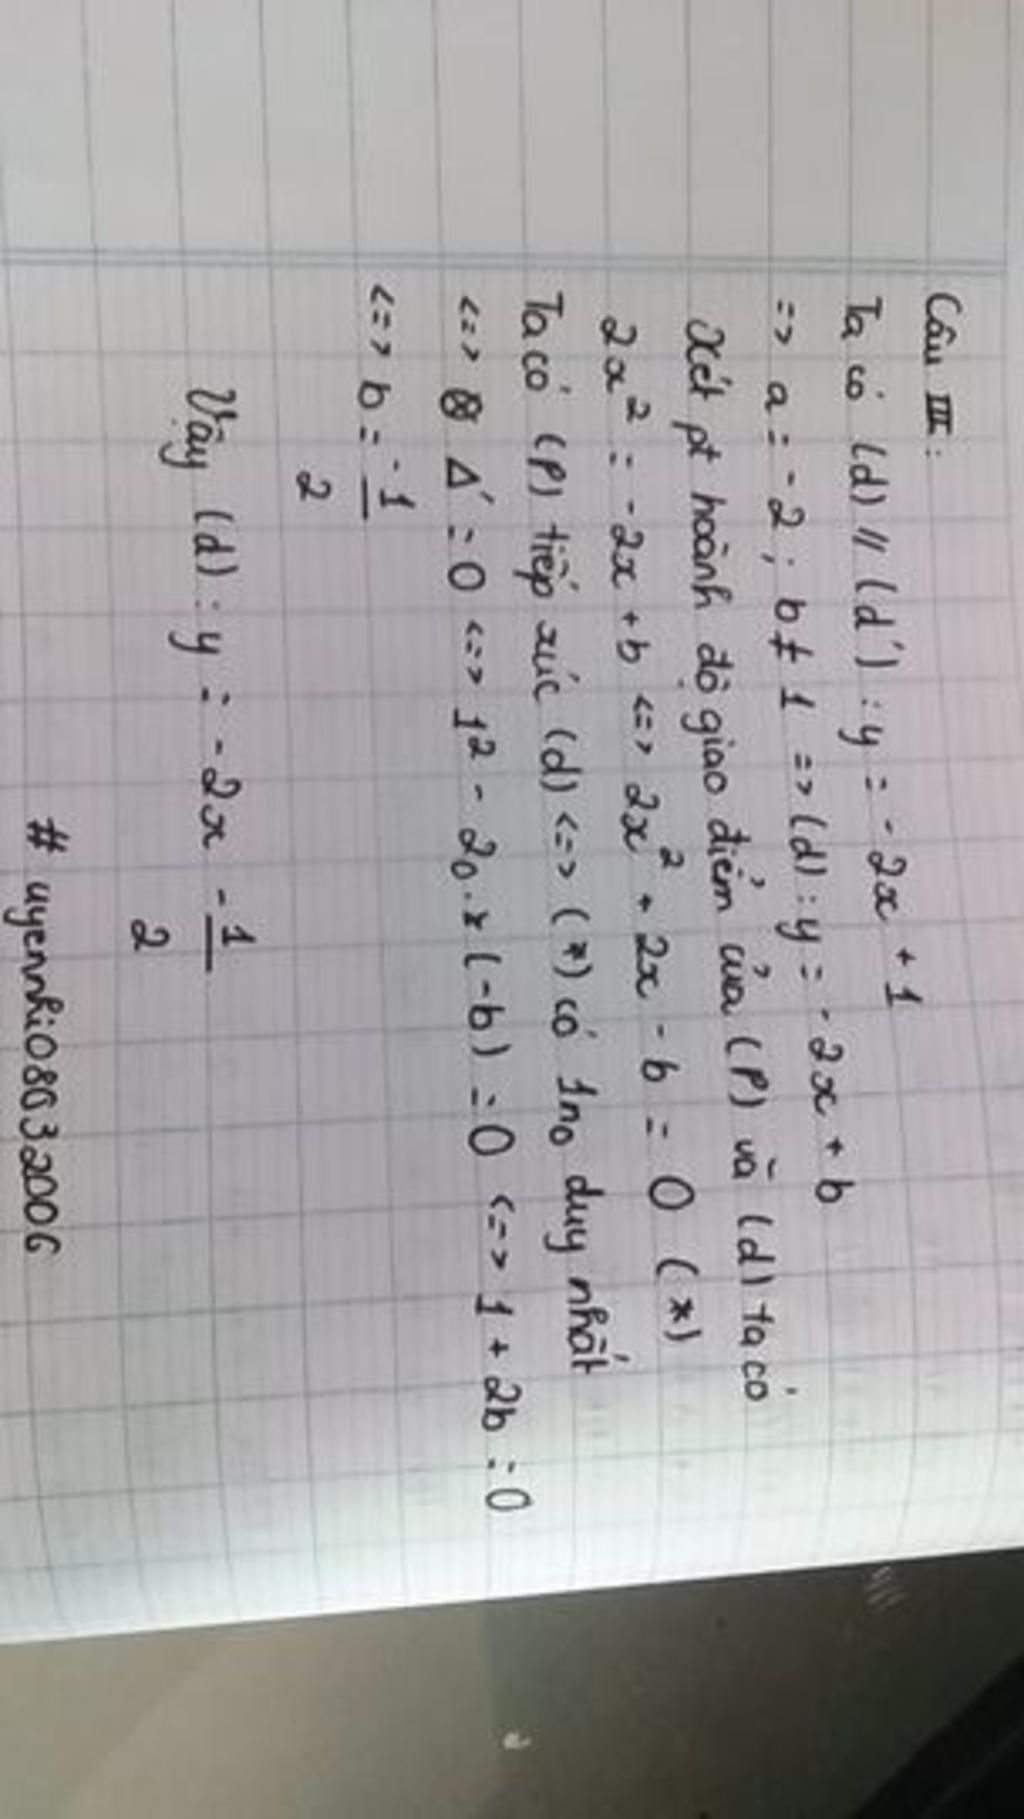 Câu III:
Ta có (d) // (d') : y = -2x + 1
=> a = -2 ; b ≠ 1 => (d) : y = -2x + b
Xét pt hoành độ giao điểm của (P) và (d) ta có
2x² = -2x + b <=> 2x² + 2x - b = 0 (*)
Ta có (P) tiếp xúc (d) <=> (*) có 1no duy nhất
<=> Δ' = 0 <=> 1² - 2 . (-b) = 0 <=> 1 + 2b = 0
<=> b = -1/2
Vậy (d) : y = -2x - 1/2
# uyennhi08032006